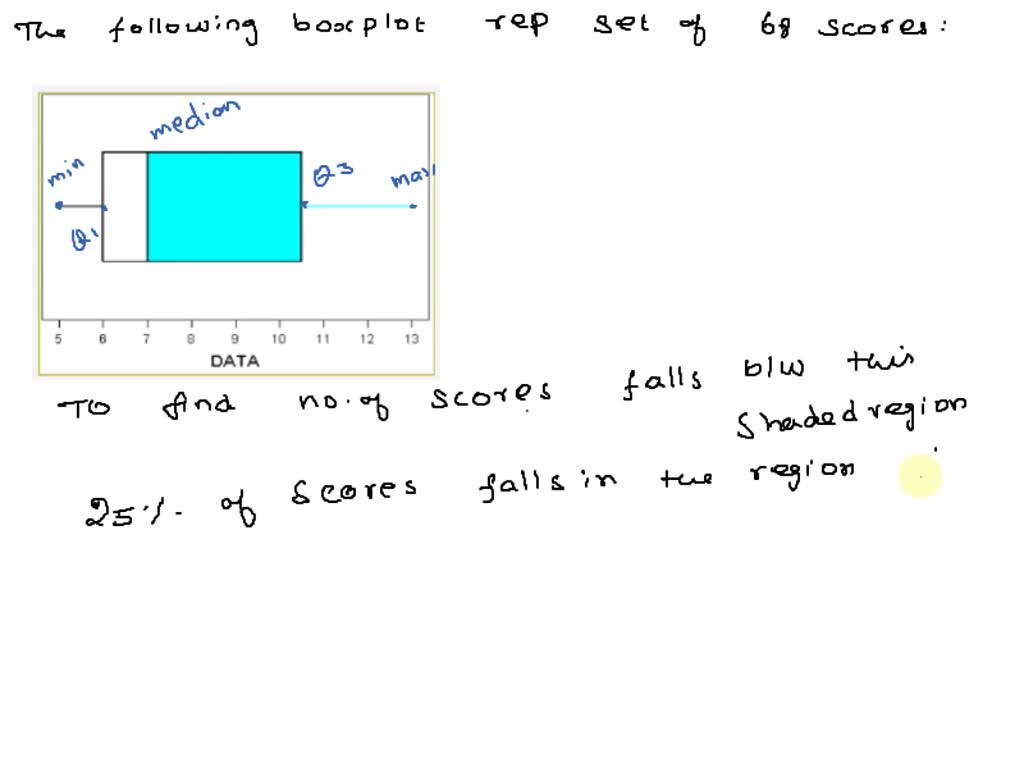 The following boxplot rep set of 68 scores:
median
min
Q3
max
Q1
5 6 7 8 9 10 11 12 13
DATA
To find no. of scores falls b/w this
shaded region
25% of scores falls in the region